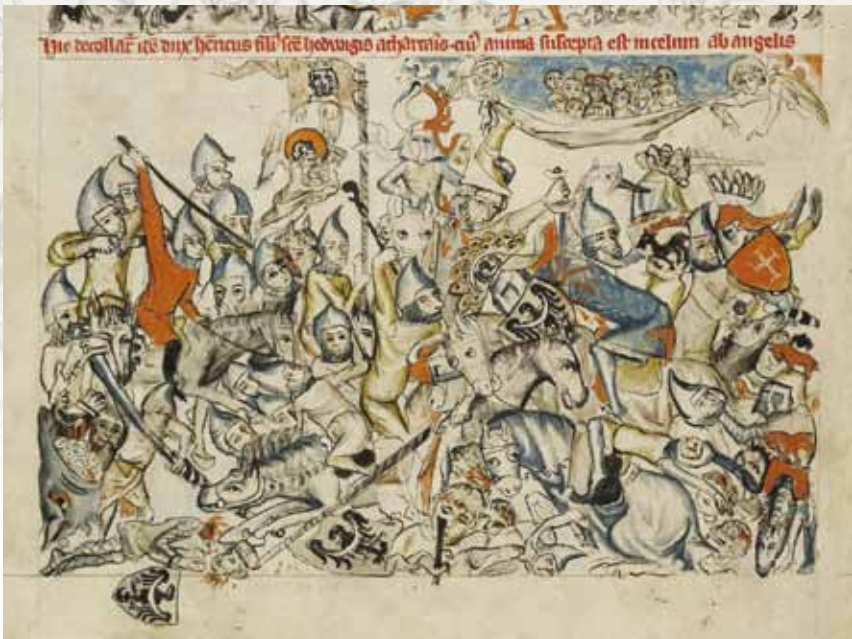 Hic decollat᷑ itē dux hēricus filiꝰ scē hedwigis a thartaris eiꝰ anima suscepta est in celum ab angelis